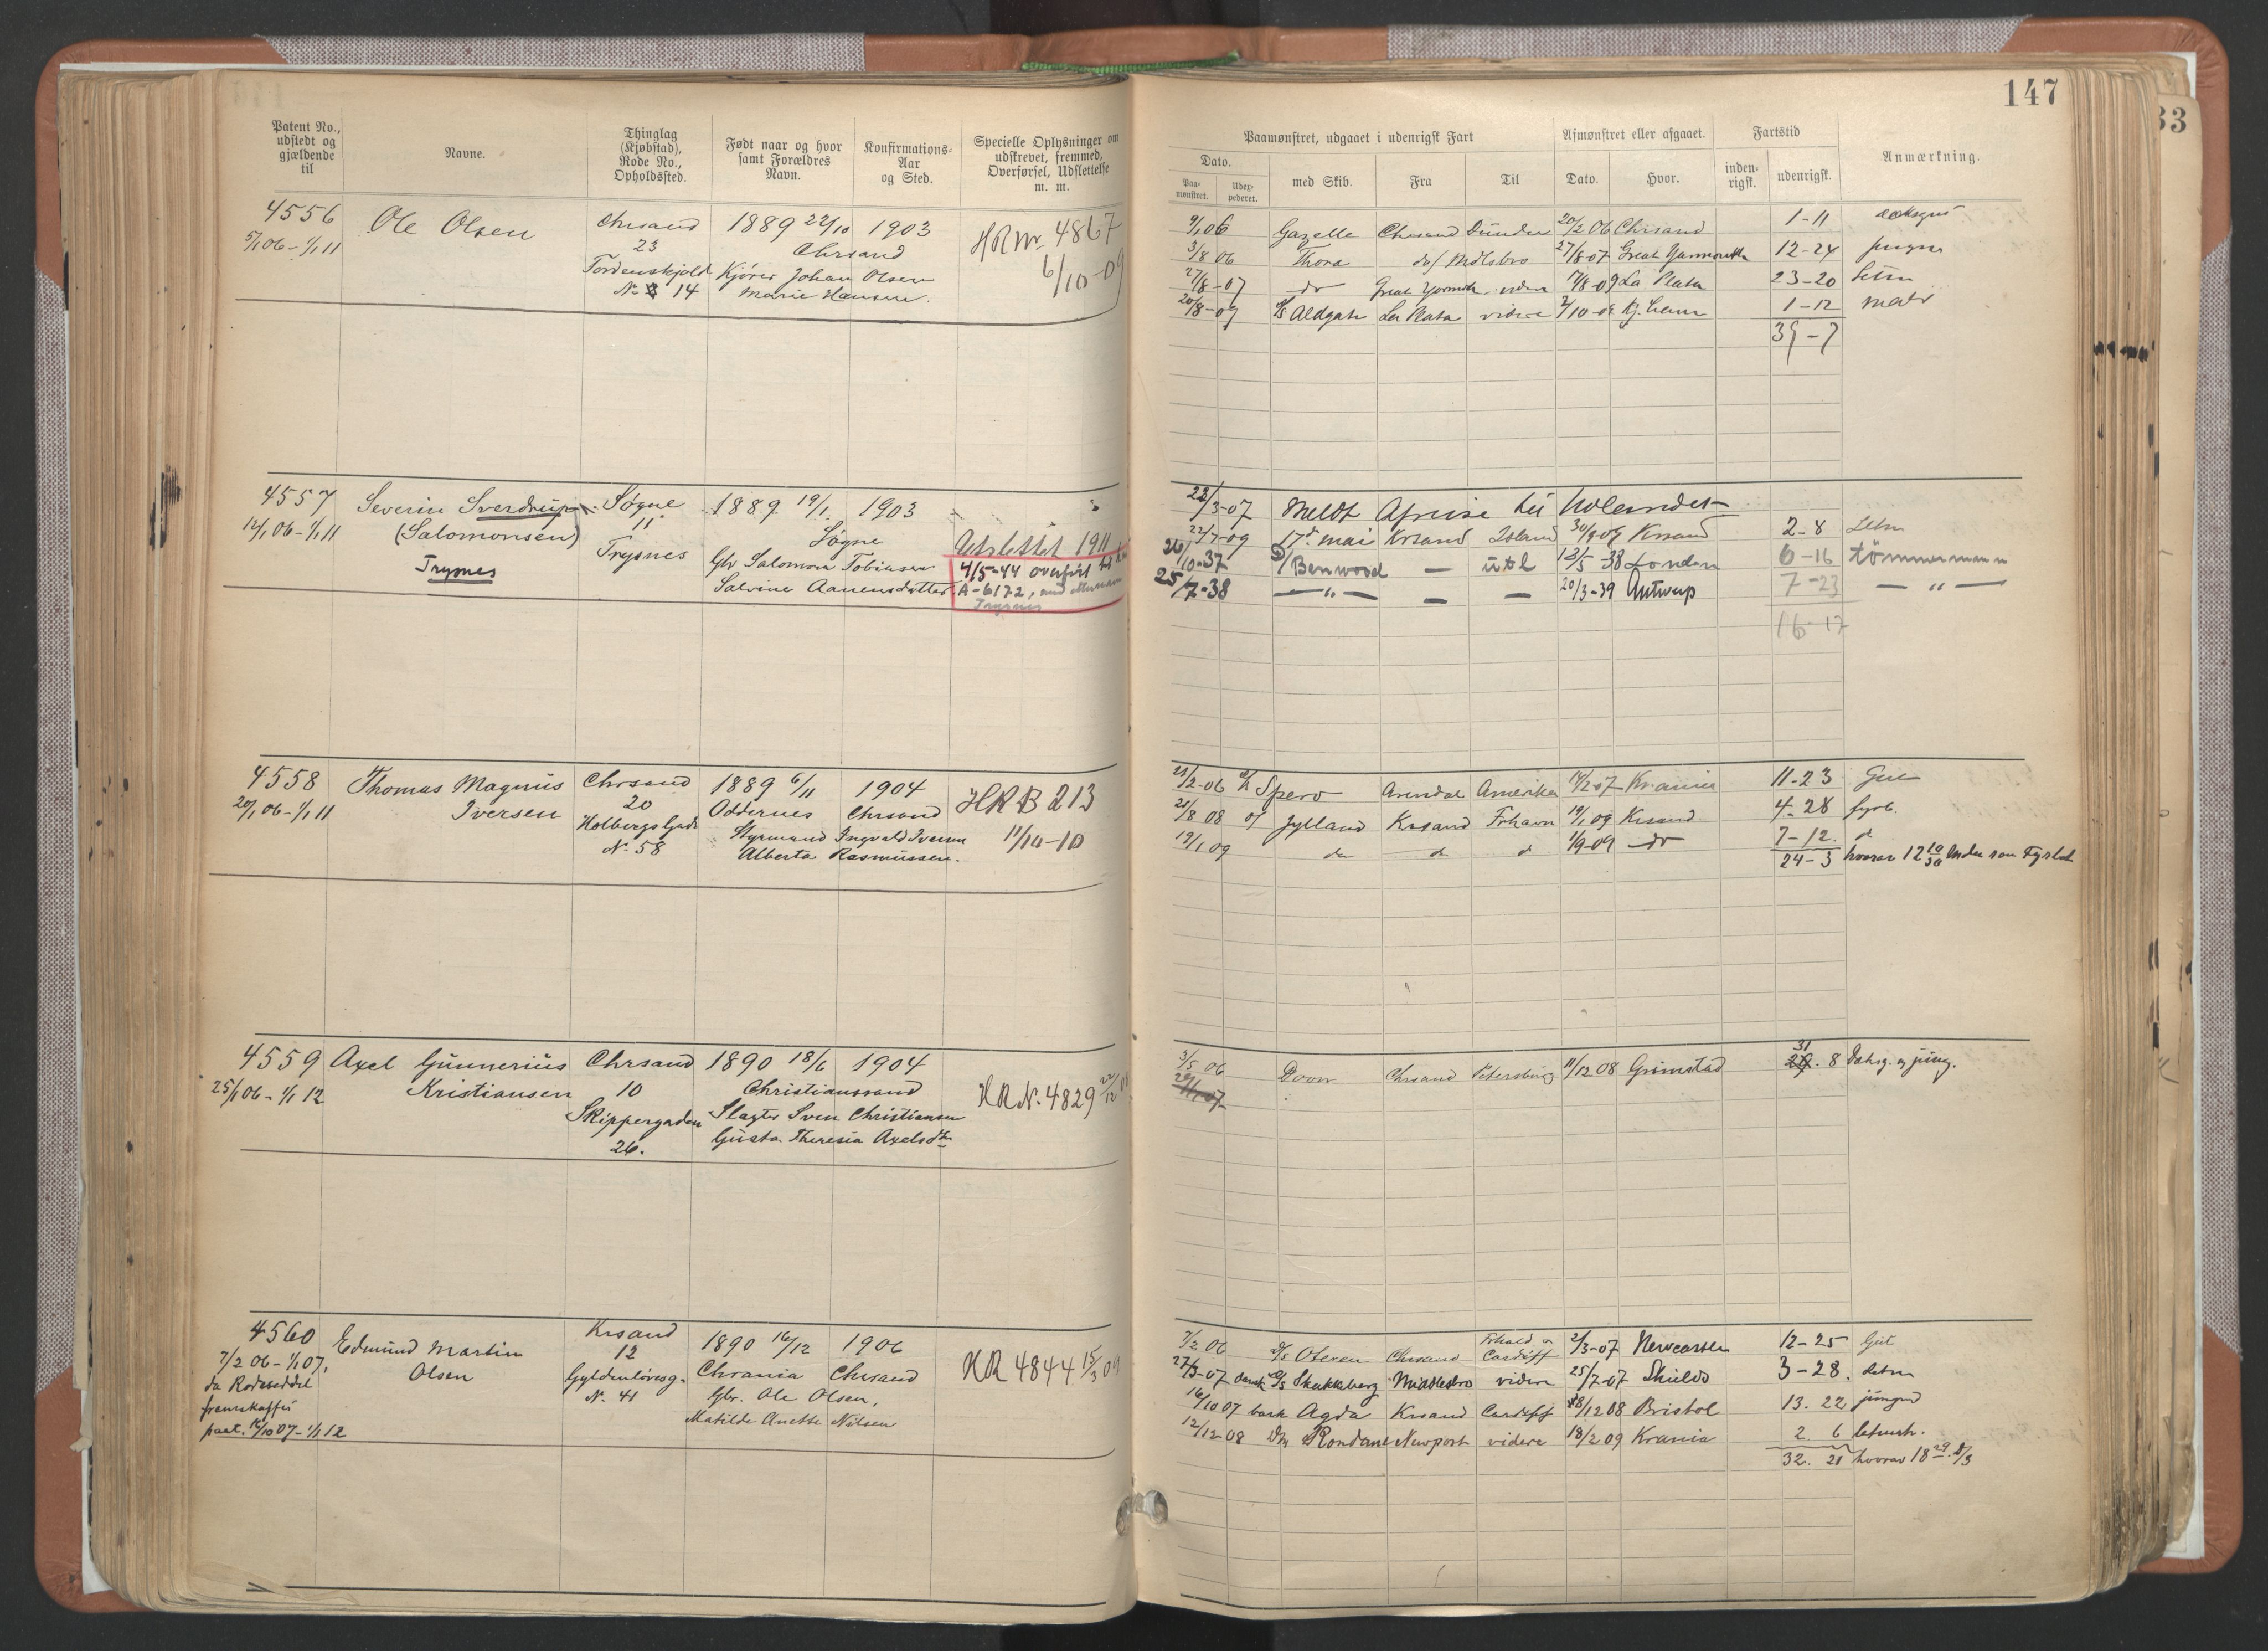 147
33
Patent No., udstedt og gjældende til
Navne.
Thinglag (Kjøbstad), Rode No., Opholdssted.
Født naar og hvor samt Forældres Navn.
Konfirmations-Aar og Sted.
Specielle Oplysninger om udskrevet, fremmed, Overførsel, Udslettelse m. m.
Paamønstret, udgaaet i udenrigsk Fart
Afmønstret eller afgaaet.
Fartstid
Anmærkning.
Dato.
Paa-mønstret.
Uder-pederet.
med Skib.
Fra
Til
Dato.
Hvor.
inden-rigsk.
udenrigsk.
4556 Ole Olsen Chrsand 1889 22/10 1903 HRNr. 4867
5/1 06 - 1/1 11 23 Chrsand 6/10-09
Tordenskjold Kjører Johan Olsen
No 14 Marie Hansen.
9/1 06 Gazelle Chrsand Dundee 20/2 06 Chrsand 1-11
3/8 06 Thora do/ Mdlsbro 27/8-07 Great Yarmouth 12-24 jungm
27/8-07 do Great Yarmth videre 17/8-09 La Plata 23-20 letm
20/8-09 Aldgate La Plata videre 1-12 matr
39-7
4557 Severin Sverdrup Søgne 1889 19/1 1903
12/1 06 - 1/1 11 (Salomonsen) 11 Søgne Utslettet 1911
Trysnes Trysnes Gbr Salomon Tobiassen 4/5-44 overført
Salvine Aanensdatter A-6172,
Trysnes
22/3-07 Meldt Afreise til
22/7-09 17de mai Krsand Island 30/9-09 Krsand 2-8 Letm
26/10-37 D/ Benwood — utl 12/5-38 London 6-16 tömmermann
25/7-38 —"— — — 20/3-39 Antwerp 7-23 —"—
16-17
4558 Thomas Magnus Chrsand 1889 6/11 1904 HRB 213
20/1 06 - 1/1 11 Iversen 20 Oddernes Chrsand 11/10-10
Holbergs Gade Styrmand Ingvald Iversen
No 58 Alberta Rasmussen.
21/2-06 Spero Arendal Amerika 14/2 07 Krania 11-23 Gut
21/8 08 Jylland Krsand Frhavn 19/1 09 Krsand 4-28 fyrb.
19/1 09 do d d 1/9-09 do 7-12. d
24-3 hvorav 12 10/30 Mdr som Fyrbøt
4559 Axel Gunnerius Chrsand 1890 18/6 1904
25/1 06 - 1/1 12 Kristiansen 10 Christianssand HRN. 4829 22/12 08
Skippergaden Slagter Sven Christiansen
26. Gusta Theresia Axelsdtr
3/5 06 Doon Chrsand Petersburg 11/12 08 Grimstad 31. 8 Dæksg. og jung.
4560 Edmund Martin Krsand 1890 16/12 1906 HR 4844 15/3 09
7/2 06 - 1/1 07, Olsen 12 Chrania Chrsand
da Rodeseddel Gyldenløvesg. Gbr. Ole Olsen,
fremskaffes No. 41 Matilde Anette Nilsen
paat. 16/10 07 - 1/1 12
7/2 06 D/s Oteren Chrsand Frhald o Cardiff 2/3-07 Newcastle 12-25 Gut
27/3-07 dansk D/s Stakkeborg Middlesbro videre 25/7-07 Shields 3-28. detm
16/10 07 bark Agda Krsand Cardiff 8/12 08 Bristol 13. 22 jungm
12/12-08 Rondane Newport videre 18/2 09 Krania 2. 6 letmtr.
32. 21 hvorav 18 29. 8/3